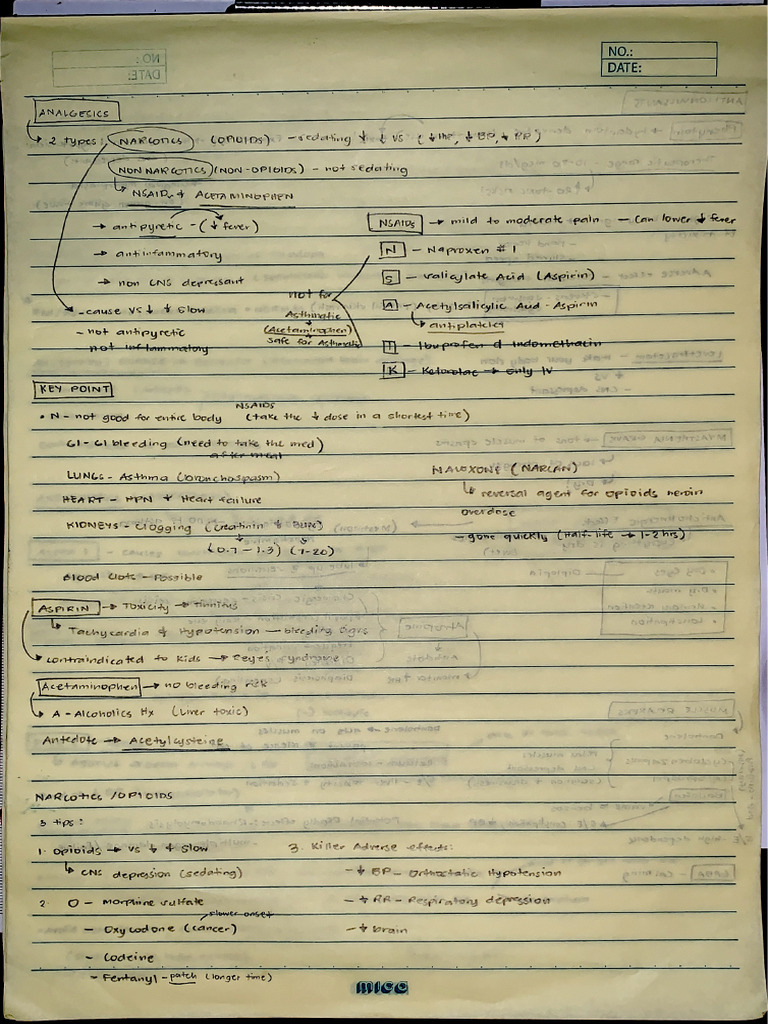 NO.:
DATE:
ANALGESICS
↳ 2 types NARCOTICS (OPIOIDS) - sedating ↓ ↓ VS (↓HR, ↓BP, ↓RR)
NON NARCOTICS (NON-OPIOIDS) - not sedating
↳ NSAIDs & ACETAMINOPHEN
→ antipyretic - (↓ fever)
→ antiinflammatory
→ non CNS depressant
- cause VS ↓ & slow
- not antipyretic
not inflammatory
NSAIDs → mild to moderate pain - can lower ↓ fever
N - Naproxen #1
S - Salicylate Acid (Aspirin)
A - Acetylsalicylic Acid - Aspirin
↳ antiplatelet
I - Ibuprofen & Indomethacin
K - Ketorolac → only IV
not for
Asthmatic
(Acetaminophen)
safe for Asthmatic
KEY POINT
NSAIDS
• N - not good for entire body (take the ↓ dose in a shortest time)
GI - GI bleeding (need to take the med)
after meal
LUNGS - Asthma (bronchospasm)
HEART - HPN & Heart failure
KIDNEYS - Clogging (creatinin & BUN)
(0.7 - 1.3) (7-20)
Blood Clots - Possible
NALOXONE (NARCAN)
↳ reversal agent for opioids heroin
overdose
- gone quickly (Half-life → 1-2 hrs)
ASPIRIN → Toxicity → Tinnitus
↳ Tachycardia & Hypotension - bleeding signs
contraindicated to kids → Reye's syndrome
Acetaminophen → no bleeding risk
↳ A - Alcoholics Hx (Liver toxic)
Antedote → Acetylcysteine
NARCOTICS / OPIOIDS
3 tips:
1. Opioids → VS ↓ & slow
↳ CNS depression (sedating)
2. O - Morphine sulfate
slower onset
- Oxycodone (cancer)
- Codeine
- Fentanyl - patch (longer time)
3. Killer Adverse effects:
- ↓ BP - Orthostatic Hypotension
- ↓ RR - Respiratory depression
- ↓ brain
mico